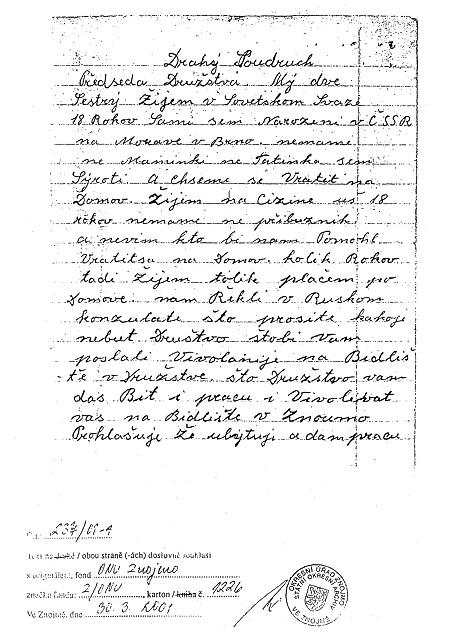 Drahý Soudruch
Předseda Družstva Mý dve
Sestrý Žijem v Sovetskom Svaze
18 Rokov Sami sem Narozeni v ČSSR
na Morave v Brno. nemame
ne Maminki ne Tatinka sem
Syroti a chseme se Vratit na
Domov. Žijem na Cizine uš 18
rokov nemame ne přibuznik
a nevim kto bi nam Pomohl
Vratitsa na Domov. kolik Rokov
tadi Žijem tolik plačem po
Domove. nam Řekli v Ruskom
konzulate što prosite kakoje
nebut Društvo štobi Vam
poslali Vivolanije na Bidliš
tě v Družstve. što Družstvo vam
das Bit i pracu i Vivolivat
vas na Bidliště v Znoumo
Prohlašuje že ubytuji a dam pracu
237/01-1
/ obou straně (-ách) doslovně souhlasí
s originálem, fond ONV Znojmo
značka fondu: 2/ONV, karton / kniha č. 1226
Ve Znojmě, dne 30. 3. 2001
OKRESNÍ ÚŘAD ZNOJMO
STÁTNÍ OKRESNÍ ARCHIV
VE ZNOJMĚ